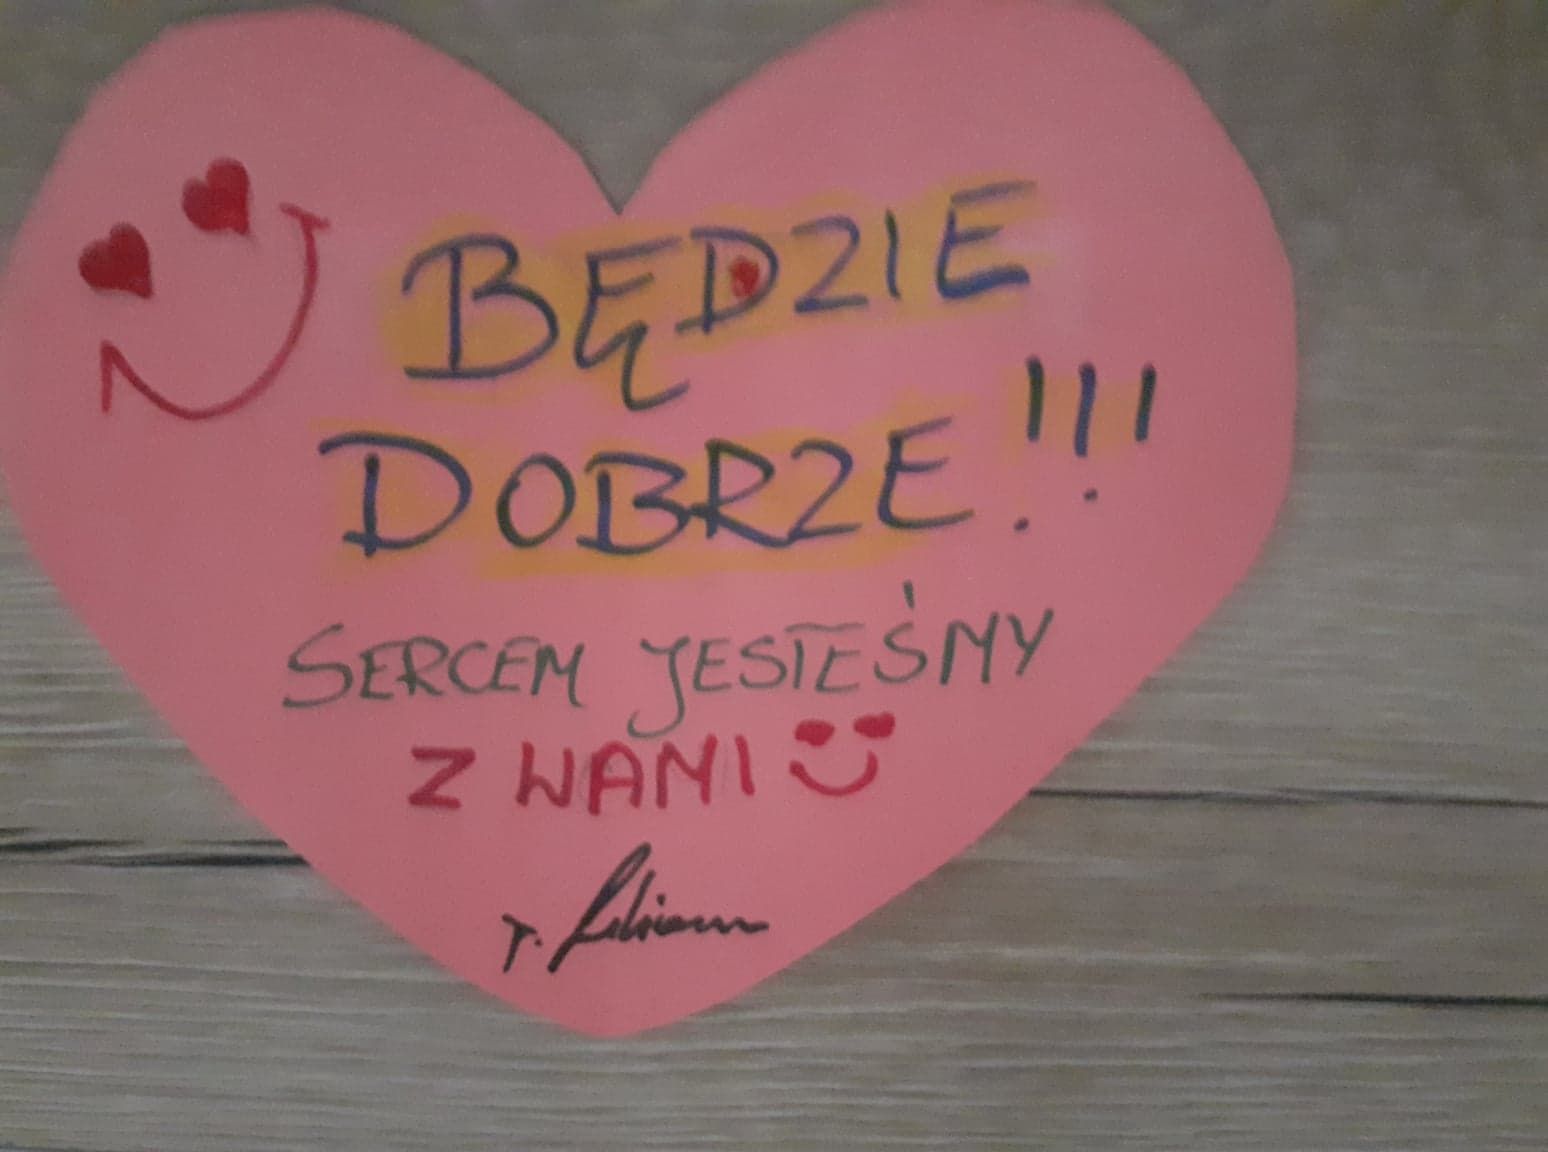 BĘDZIE
DOBRZE!!!
SERCEM JESTEŚMY
Z WAMI